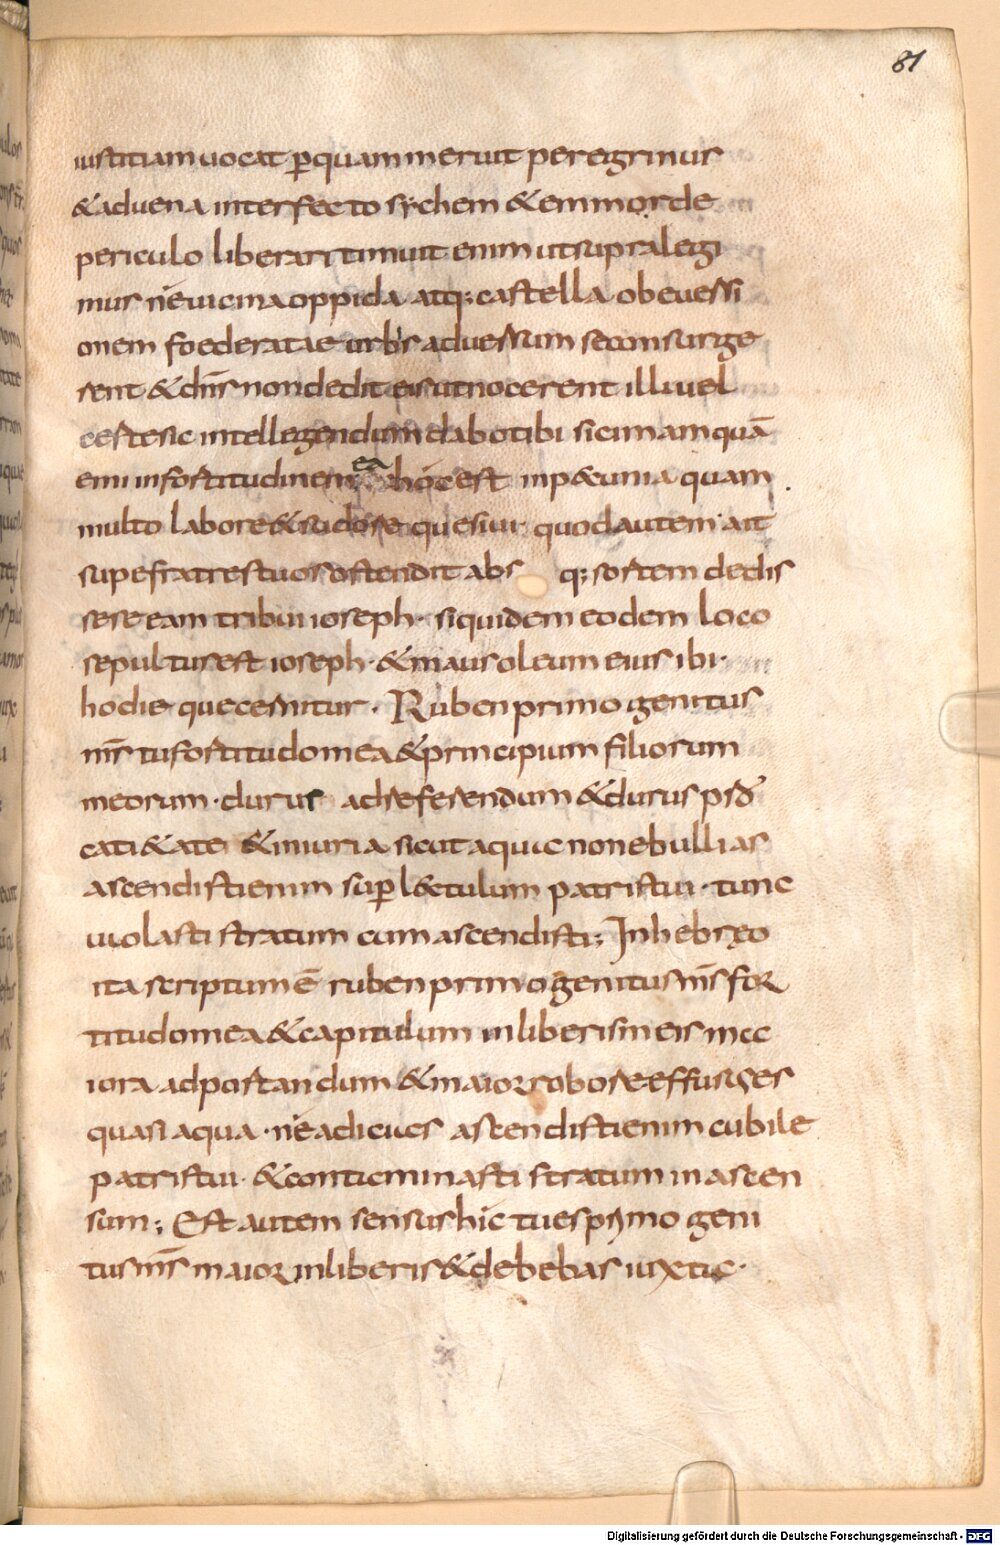 81
iustitiam uocat ꝑquam meruit peregrinus
& aduena interfecto sychem & emmor de
periculo liberari timuit enim ut supra legi
mus nē uicina oppida atq; castella ob euersi
onem foederatae urbis aduersum se consurge
rent & dn̄s non dedit eis ut nocerent illi uel
certe sic intellegendum dabo tibi sicimam quā
emi in fortitudine mea hoc est in pecunia quam
multo labore & sudore quesiui quod autem ait
super fratres tuos ostendit abs q; sortem dedis
se se eam tribui ioseph · siquidem eodem loco
sepultus est ioseph · & mausoleum eius ibi
hodie que cernitur · Ruben primogenitus
m̄s tu fortitudo mea & principium filiorum
meorum · durus ad referendum & durus
&iniuria sicut aqua non ebullias
ascendisti enim suꝑ lectulum patris tui · tunc
uiolasti stratum cum ascendisti; In hebręo
ita scriptum ē ruben primogenitus m̄s for
titudo mea & capitulum in liberis meis
iora ad portandum & maior robore effusus es
quasi aqua · nē adicias ascendisti enim cubile
patris tui · & contaminasti stratum in ascen
sum; Est autem sensus hic tu es primogeni
tus m̄s maior in liberis & debebas iuxta ·
Digitalisierung gefördert durch die Deutsche Forschungsgemeinschaft - DFG